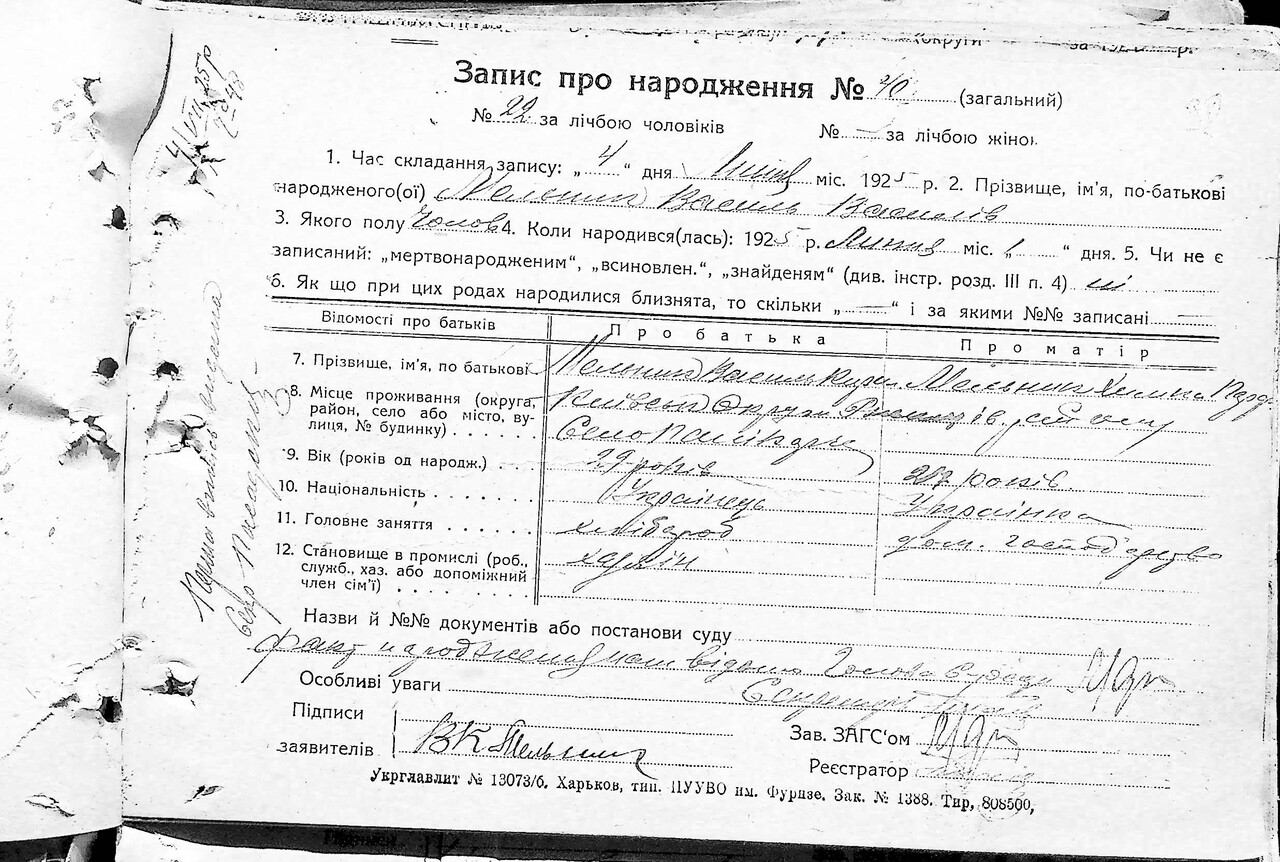 Запис про народження № 40 (загальний)
№ 22 за лічбою чоловіків № — за лічбою жінок
1. Час складання запису: „ 4 “ дня Липця міс. 1925 р. 2. Прізвище, ім'я, по-батькові
народженого(ої) Мельник Василь Василів
3. Якого полу Чолов 4. Коли народився(лась): 1925 р. Липця міс. „ 1 “ дня. 5. Чи не є
записаний: „мертвонародженим“, „всиновлен.“, „знайденям“ (див. інстр. розд. III п. 4) ні
6. Як що при цих родах народилися близнята, то скільки „ — “ і за якими №№ записані —
Відомості про батьків Про батька Про матір
7. Прізвище, ім'я, по батькові Мельник Василь Мельник
8. Місце проживання (округа, Київськ Округи
район, село або місто, ву- Село
лиця, № будинку)
9. Вік (років од народж.) 29 років 27 років.
10. Національність Українець Українка
11. Головне заняття хлібороб дом. господ'арство
12. Становище в промислі (роб., хазяїн
служб., хаз. або допоміжний
член сім'ї)
Назви й №№ документів або постанови суду
факт народження нам відомо Голова с/ради
Особливі уваги Секретарь
Підписи
заявителів ВК Мельник
Зав. ЗАГС'ом
Реєстратор
Укрглавлит № 13073/б. Харьков, тип. ПУУВО им. Фрунзе. Зак. № 1388. Тир, 808500,